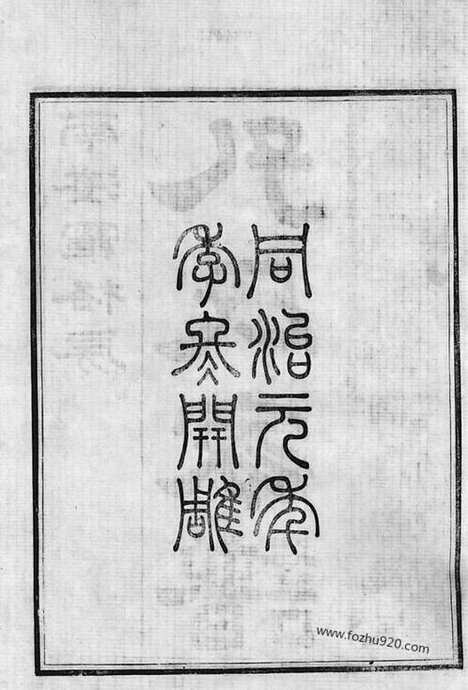 同治元年
季冬開雕
www.fozhu920.com